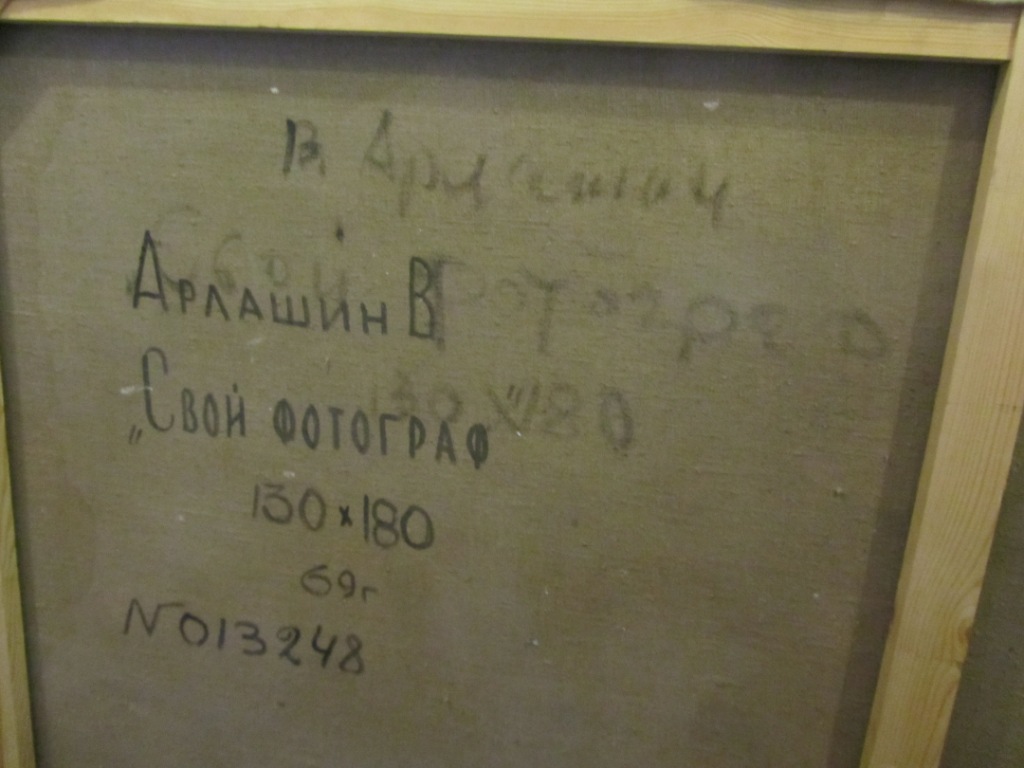 В. Арлашин
Арлашин В
Свой фотогра
„Свой фотограф"
130 x 180
130 × 180
69г
N013248